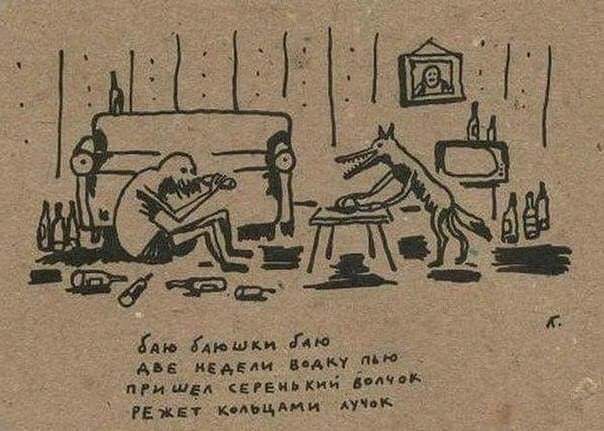 к.
баю баюшки баю
две недели водку пью
пришел серенький волчок
режет кольцами лучок